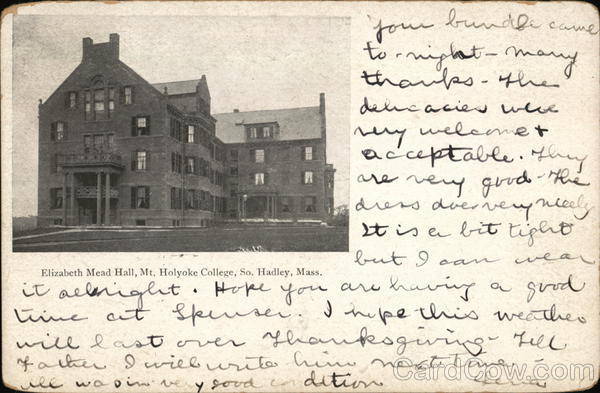 Your bundle came
to-night - many
thanks - The
delicacies were
very welcome +
acceptable. They
are very good - The
dress does very nicely
It is a bit tight
but I can wear
it allright. Hope you are having a good
time at Spenser. I hope this weather
will last over Thanksgiving - Tell
Father I will write him next time -
all was in very good condition
Elizabeth Mead Hall, Mt. Holyoke College, So. Hadley, Mass.
CardCow.com